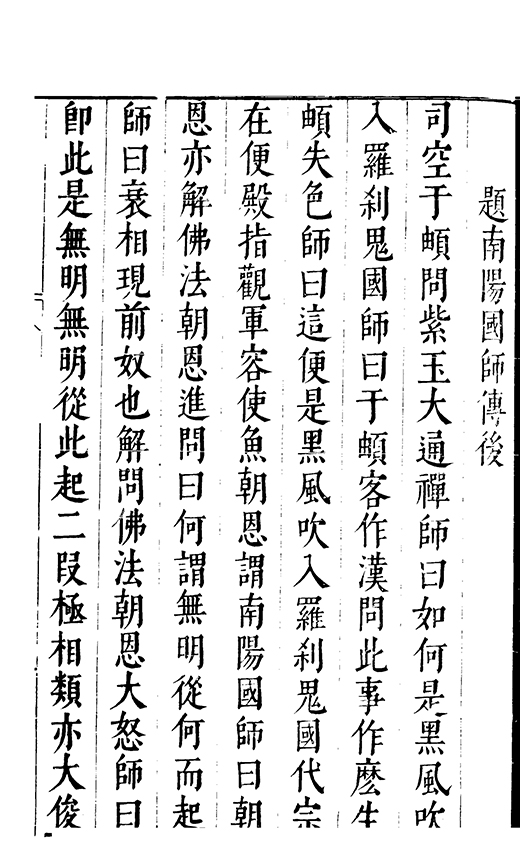 題南陽國師傳後
司空于頔問紫玉大通禪師曰如何是黑風吹
入羅刹鬼國師曰于頔客作漢問此事作麼生
頔失色師曰這便是黑風吹入羅刹鬼國代宗
在便殿指觀軍容使魚朝恩謂南陽國師曰朝
恩亦解佛法朝恩進問曰何謂無明從何而起
師曰衰相現前奴也解問佛法朝恩大怒師曰
卽此是無明無明從此起二段極相類亦大俊